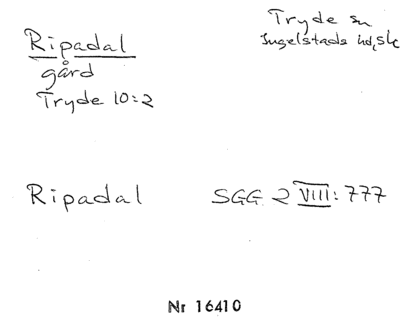 Ripadal
gård
Tryde 10:2
Tryde sn
Ingelstads hd, Sk
Ripadal
SGG 2 VIII: 777
Nr 16410